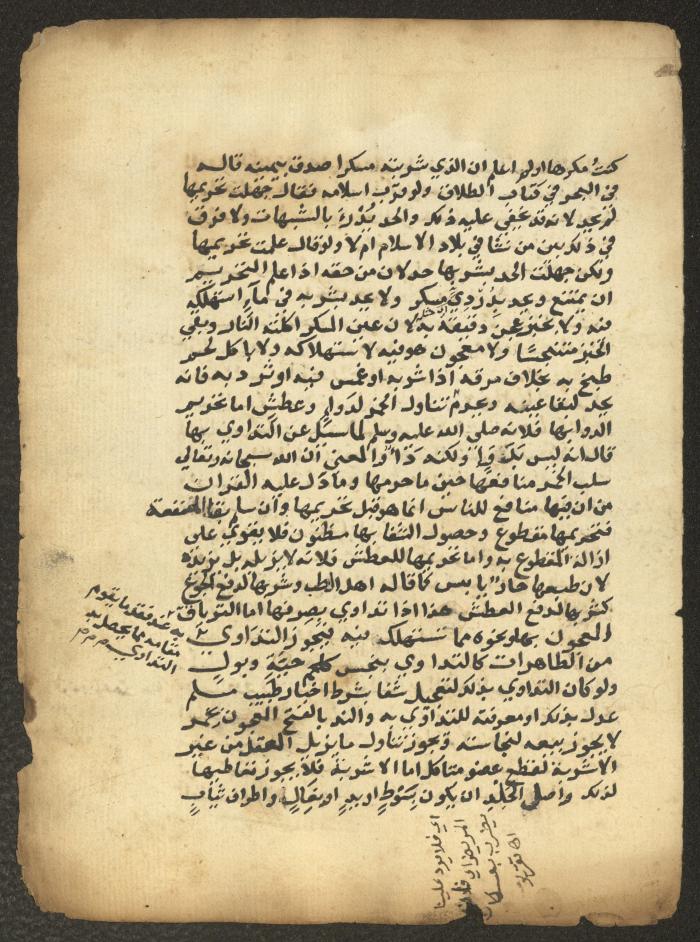 كنتُ مكرها اولم اعلم ان الذي شربته مسكرا صدق بيمينه قاله
في البحر في كتاب الطلاق ولو قرب اسلامه فقال جهلت تحريمها
لم يحد لانه قد يخفي عليه ذلك والحد يُدْرَءُ بالشبهات ولا فرق
في ذلك بين من نشا في بلاد الاسلام ام لا ولو قال علمت تحريمها
ولكن جهلت الحد بشربها حد لان من حقه اذا علم التحريم
ان يمتنع ويحد بِدُرْدِيِّ مسكر ولا يحد بشربه في ماءٍ استهلك
فيه ولا بخبز عجن دقيقه به لان عين المسكر اكلته النار وبقي
الخبز متنجسًا ولا معجون هو فيه لاستهلاكه ولا باكل لحم
طبخ به بخلاف مرقه اذا شربه او غمس فيه او ثرد به فانه
يحد لبقا عينه ويحرم تناول الخمر لدواءٍ وعطش اما تحريم
الدوا بها فلانه صلى الله عليه وسلم لما سئل عن التداوي بها
قال انه ليس بدَوَاءٍ ولكنه دَاءٌ والمعنى ان الله سبحانه وتعالى
سلب الخمر منافعها حين ما حرمها وما دل عليه القران
من ان فيها منافع للناس انما هو قبل تحريمها وان سلم بقا المنفعة
فتحريمها مقطوع وحصول الشفا بها مظنون فلا يقوي على
ازالة المقطوع به واما تحريمها للعطش فلانه لا يزيله بل يزيده
لان طبعها حارٌ يابس كما قاله اهل الطب وشربها لدفع الجوع
كشربها لدفع العطش هذا اذا تداوي بصرفها اما الترياق
المعجون بها ونحوه مما تستهلك فيه فيجوز التداوي به
من الطاهرات كالتداوي بنجس كلحم حيَّة وبولٍ
ولو كان التداوي بذلك لتعجيل شفا بشرط اخبار طبيب مسلم
عدل بذلك او معرفته للتداوي به والند بالفتح المعجون بخمر
لا يجوز بيعه لنجاسته ويجوز تناول ما يزيل العقل من غير
الاشربة لقطع عضو متاكل اما الاشربة فلا يجوز تعاطيها
لذلك واصل الجَلْدِ ان يكون بِسَوْطٍ او يدٍ او نِعَالٍ واطراف ثيابٍ
عند فقد ما يقوم
مقامه مما يحصل به
التداوي